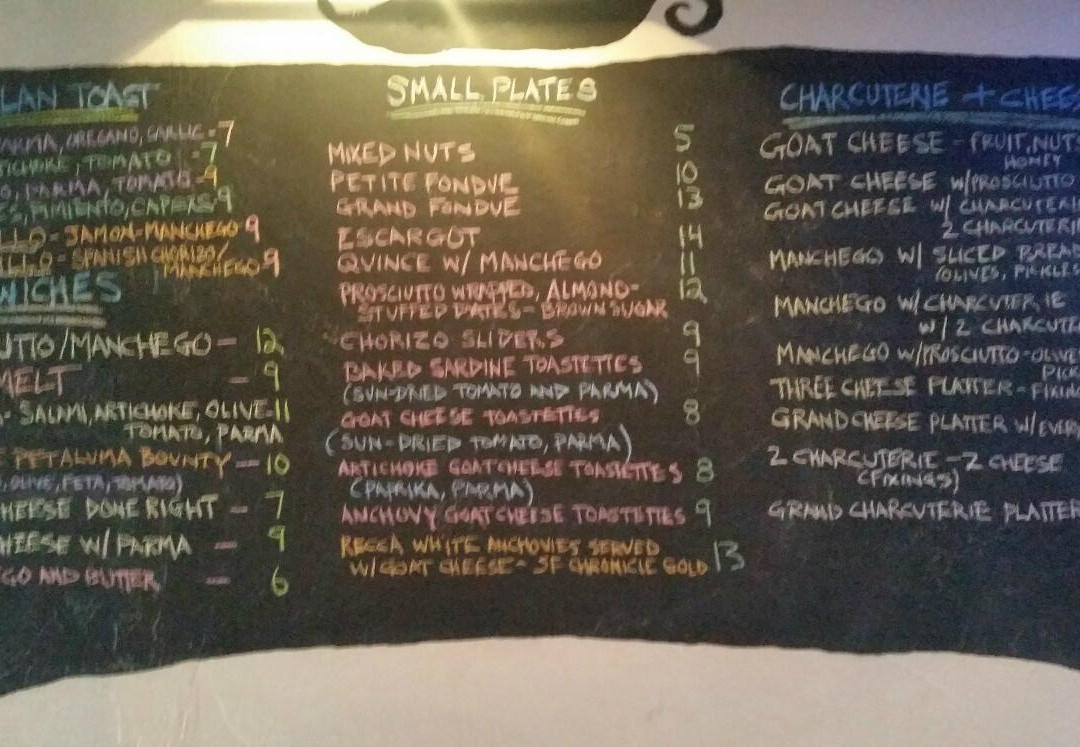 LAN TOAST
PARMA, OREGANO, GARLIC - 7
TICHOKE, TOMATO - 7
O, PARMA, TOMATO - 9
PIMIENTO, CAPERS 9
LLO - JAMON-MANCHEGO 9
LLO - SPANISH CHORIZO/
MANCHEGO - 9
WICHES
UTTO/MANCHEGO - 12
MELT - 9
- SALAMI, ARTICHOKE, OLIVE - 11
TOMATO, PARMA
PETALUMA BOUNTY - 10
OLIVE, FETA, TOMATO)
HEESE DONE RIGHT - 7
HEESE W/ PARMA - 9
GO AND BUTTER - 6
SMALL PLATES
MIXED NUTS 5
PETITE FONDUE 10
GRAND FONDUE 13
ESCARGOT 14
QUINCE W/ MANCHEGO 11
PROSCIUTTO WRAPPED, ALMOND- 12
STUFFED DATES - BROWN SUGAR
CHORIZO SLIDERS 9
BAKED SARDINE TOASTETTES 9
(SUN-DRIED TOMATO AND PARMA)
GOAT CHEESE TOASTETTES 8
(SUN-DRIED TOMATO, PARMA)
ARTICHOKE GOAT CHEESE TOASTETTES 8
(PAPRIKA, PARMA)
ANCHOVY GOAT CHEESE TOASTETTES 9
RECCA WHITE ANCHOVIES SERVED
W/ GOAT CHEESE - SF CHROMICLE GOLD 13
CHARCUTERIE + CHEES
GOAT CHEESE - FRUIT, NUTS
HONEY
GOAT CHEESE W/PROSCIUTTO
GOAT CHEESE W/ CHARCUTERIE
2 CHARCUTERIE
MANCHEGO W/ SLICED BREAD
(OLIVES, PICKLES
MANCHEGO W/ CHARCUTERIE
W/ 2 CHARCUTE
MANCHEGO W/PROSCIUTTO - OLIVE
PICK
THREE CHEESE PLATTER - FIXING
GRAND CHEESE PLATTER W/ EVERY
2 CHARCUTERIE - 2 CHEESE
(FIXINGS)
GRAND CHARCUTERIE PLATTER